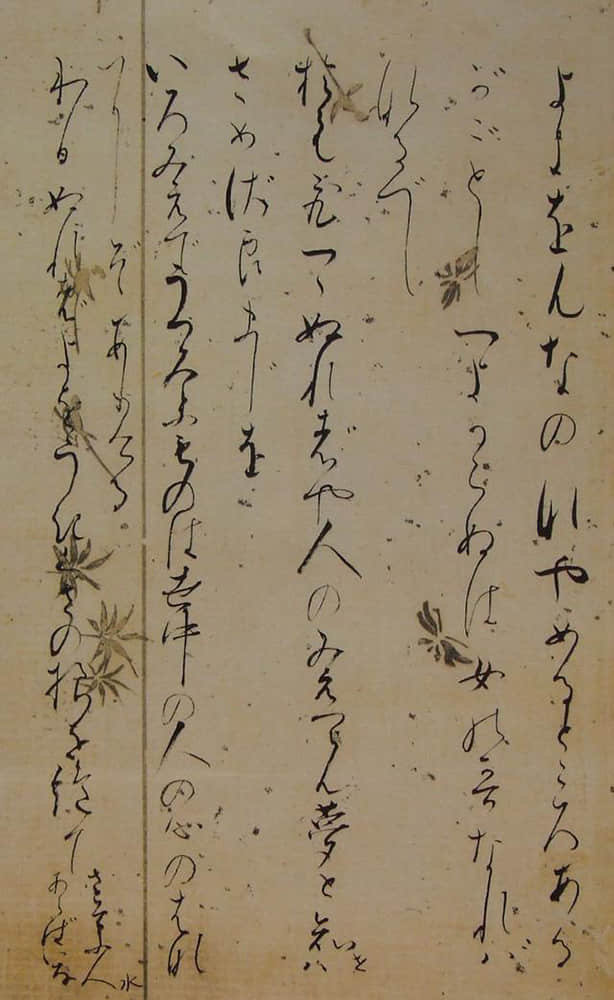 よきをんなのなやめるところある
がごとしつよからぬは女の哥なれば
なるべし
おもひつゝぬればや人のみえつらん夢と
さめざらましを
いろみえでうつろふものは世中の人の心のはな
ぞありける
わびぬれば身をうきくさの根を絶て
さそふ水
あらばいな